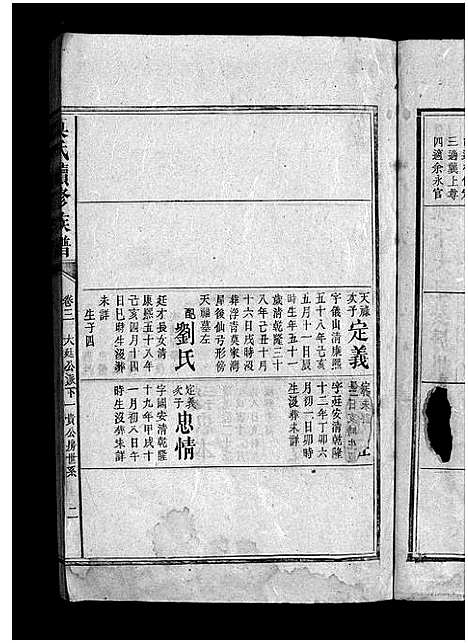 三適龔上尊
四適余永官
天祿
次子
定義
字儀山清康熙
五十八年己亥
五月十一日辰
時生年五十一
歲清乾隆三十
八年己丑十月
十六日戌時沒
葬浮青莫家灣
屋後仙弓形傍
天福墓左
配劉氏
廷才長女清
康熙五十八年
己亥四月十四
日巳時生沒葬
未詳
生子四
字廷安清乾隆
十二年丁卯六
月初一日卯時
生沒葬未詳
定義
次子
忠情
字國安清乾隆
十九年甲戌十
一月初八日午
時生沒葬未詳
氏續修族譜
卷三
大廷公派下
貴公房世系
二